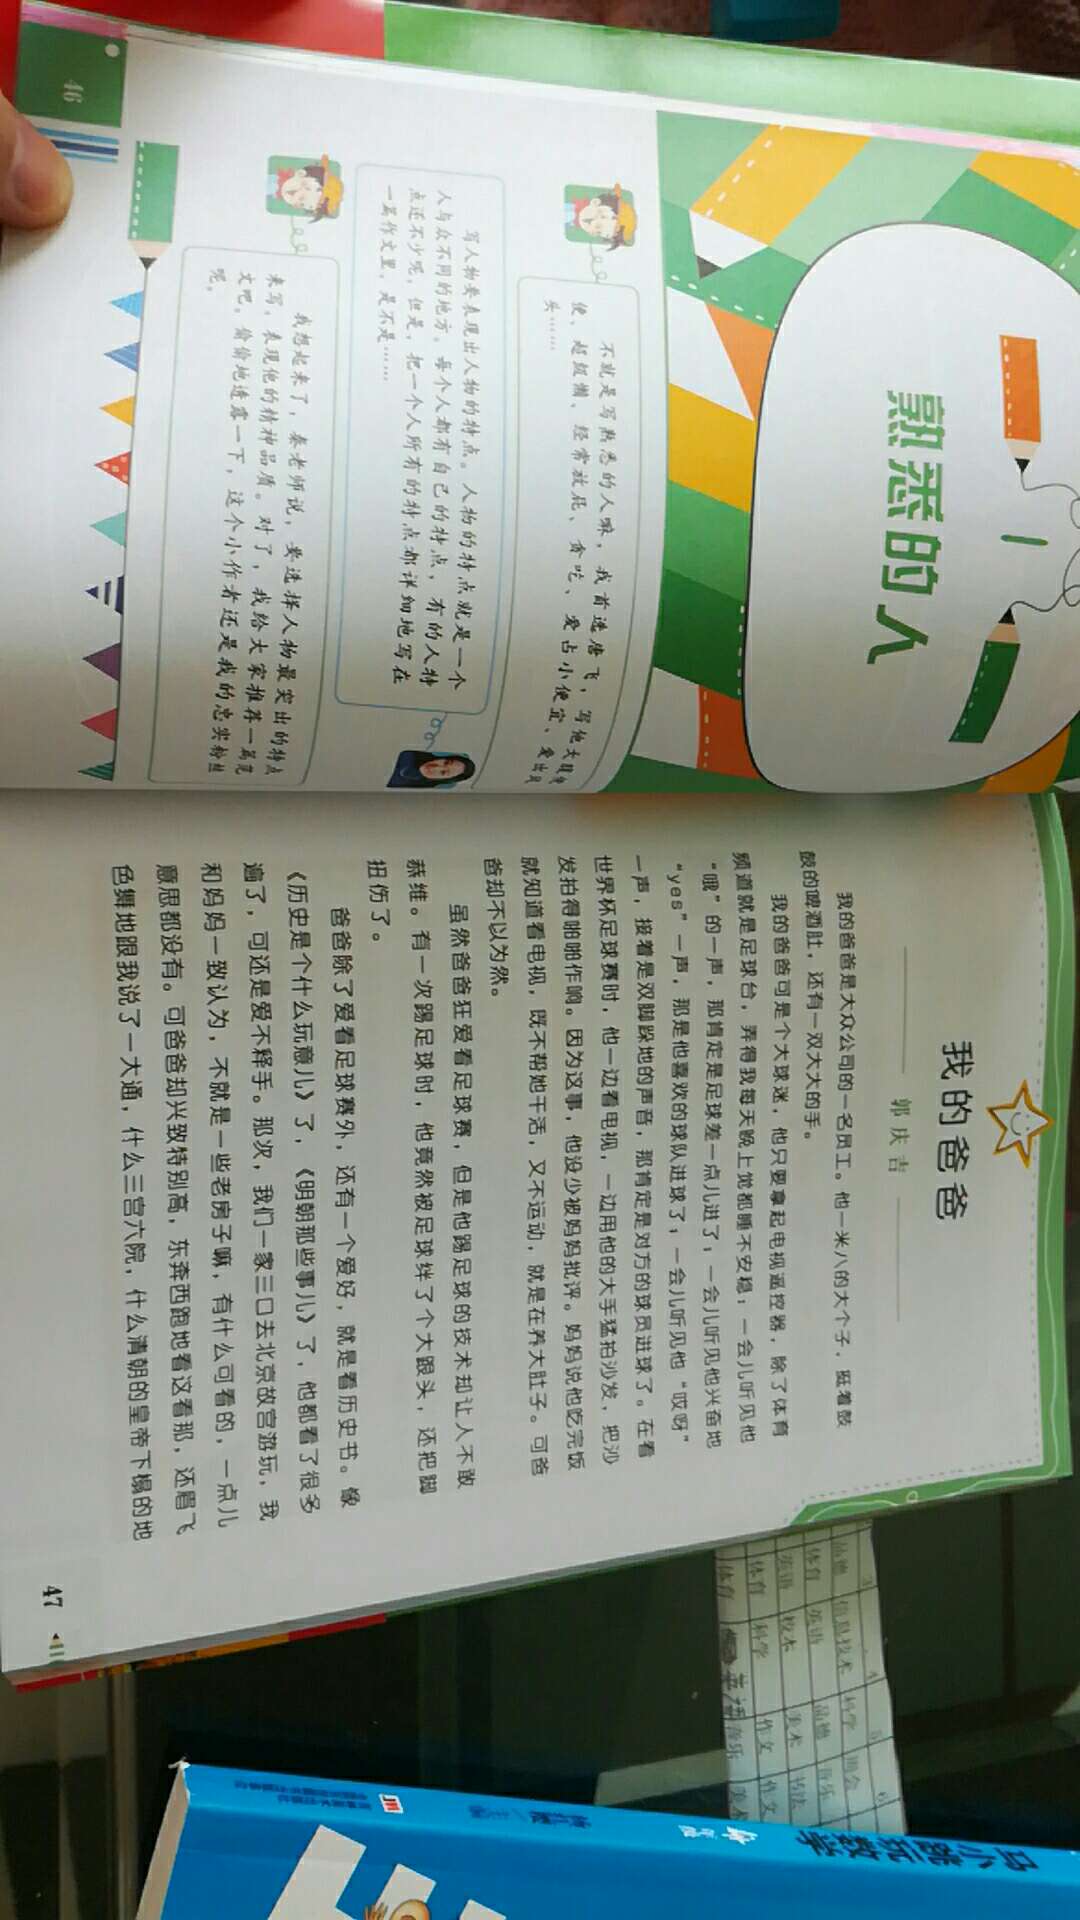 1
熟悉的人
不就是写熟悉的人嘛，我首选唐飞，写他大腹便
便、超级懒、经常放屁、贪吃、爱占小便宜、爱出风
头……
写人物要表现出人物的特点。人物的特点就是一个
人与众不同的地方。每个人都有自己的特点，有的人特
点还不少呢。但是，把一个人所有的特点都详细地写在
一篇作文里，是不是……
我想起来了，秦老师说，要选择人物最突出的特点
来写，表现他的精神品质。对了，我给大家推荐一篇范
文吧。偷偷地透露一下，这个小作者还是我的忠实粉丝
呢。
46
我的爸爸
郭庆吉
我的爸爸是大众公司的一名员工。他一米八的大个子，挺着鼓
鼓的啤酒肚，还有一双大大的手。
我的爸爸可是个大球迷，他只要拿起电视遥控器，除了体育
频道就是足球台，弄得我每天晚上觉都睡不安稳：一会儿听见他
“哦”的一声，那肯定是足球差一点儿进了；一会儿听见他兴奋地
“yes”一声，那是他喜欢的球队进球了；一会儿听见他“哎呀”
一声，接着是双脚跺地的声音，那肯定是对方的球员进球了。在看
世界杯足球赛时，他一边看电视，一边用他的大手猛拍沙发，把沙
发拍得啪啪作响。因为这事，他没少被妈妈批评。妈妈说他吃完饭
就知道看电视，既不帮她干活，又不运动，就是在养大肚子。可爸
爸却不以为然。
虽然爸爸狂爱看足球赛，但是他踢足球的技术却让人不敢
恭维。有一次踢足球时，他竟然被足球绊了个大跟头，还把脚
扭伤了。
爸爸除了爱看足球赛外，还有一个爱好，就是看历史书。像
《历史是个什么玩意儿》了，《明朝那些事儿》了，他都看了很多
遍了，可还是爱不释手。那次，我们一家三口去北京故宫游玩，我
和妈妈一致认为，不就是一些老房子嘛，有什么可看的，一点儿
意思都没有。可爸爸却兴致特别高，东奔西跑地看这看那，还眉飞
色舞地跟我说了一大通，什么三宫六院，什么清朝的皇帝下榻的地
47
3 4 5 6
品德 信息技术 科学 班会
体育 英语 品德 音乐
英语 技术 美术 书法
体育 科学 作文 作文
体育 英语 音乐 美术
马小跳玩数学